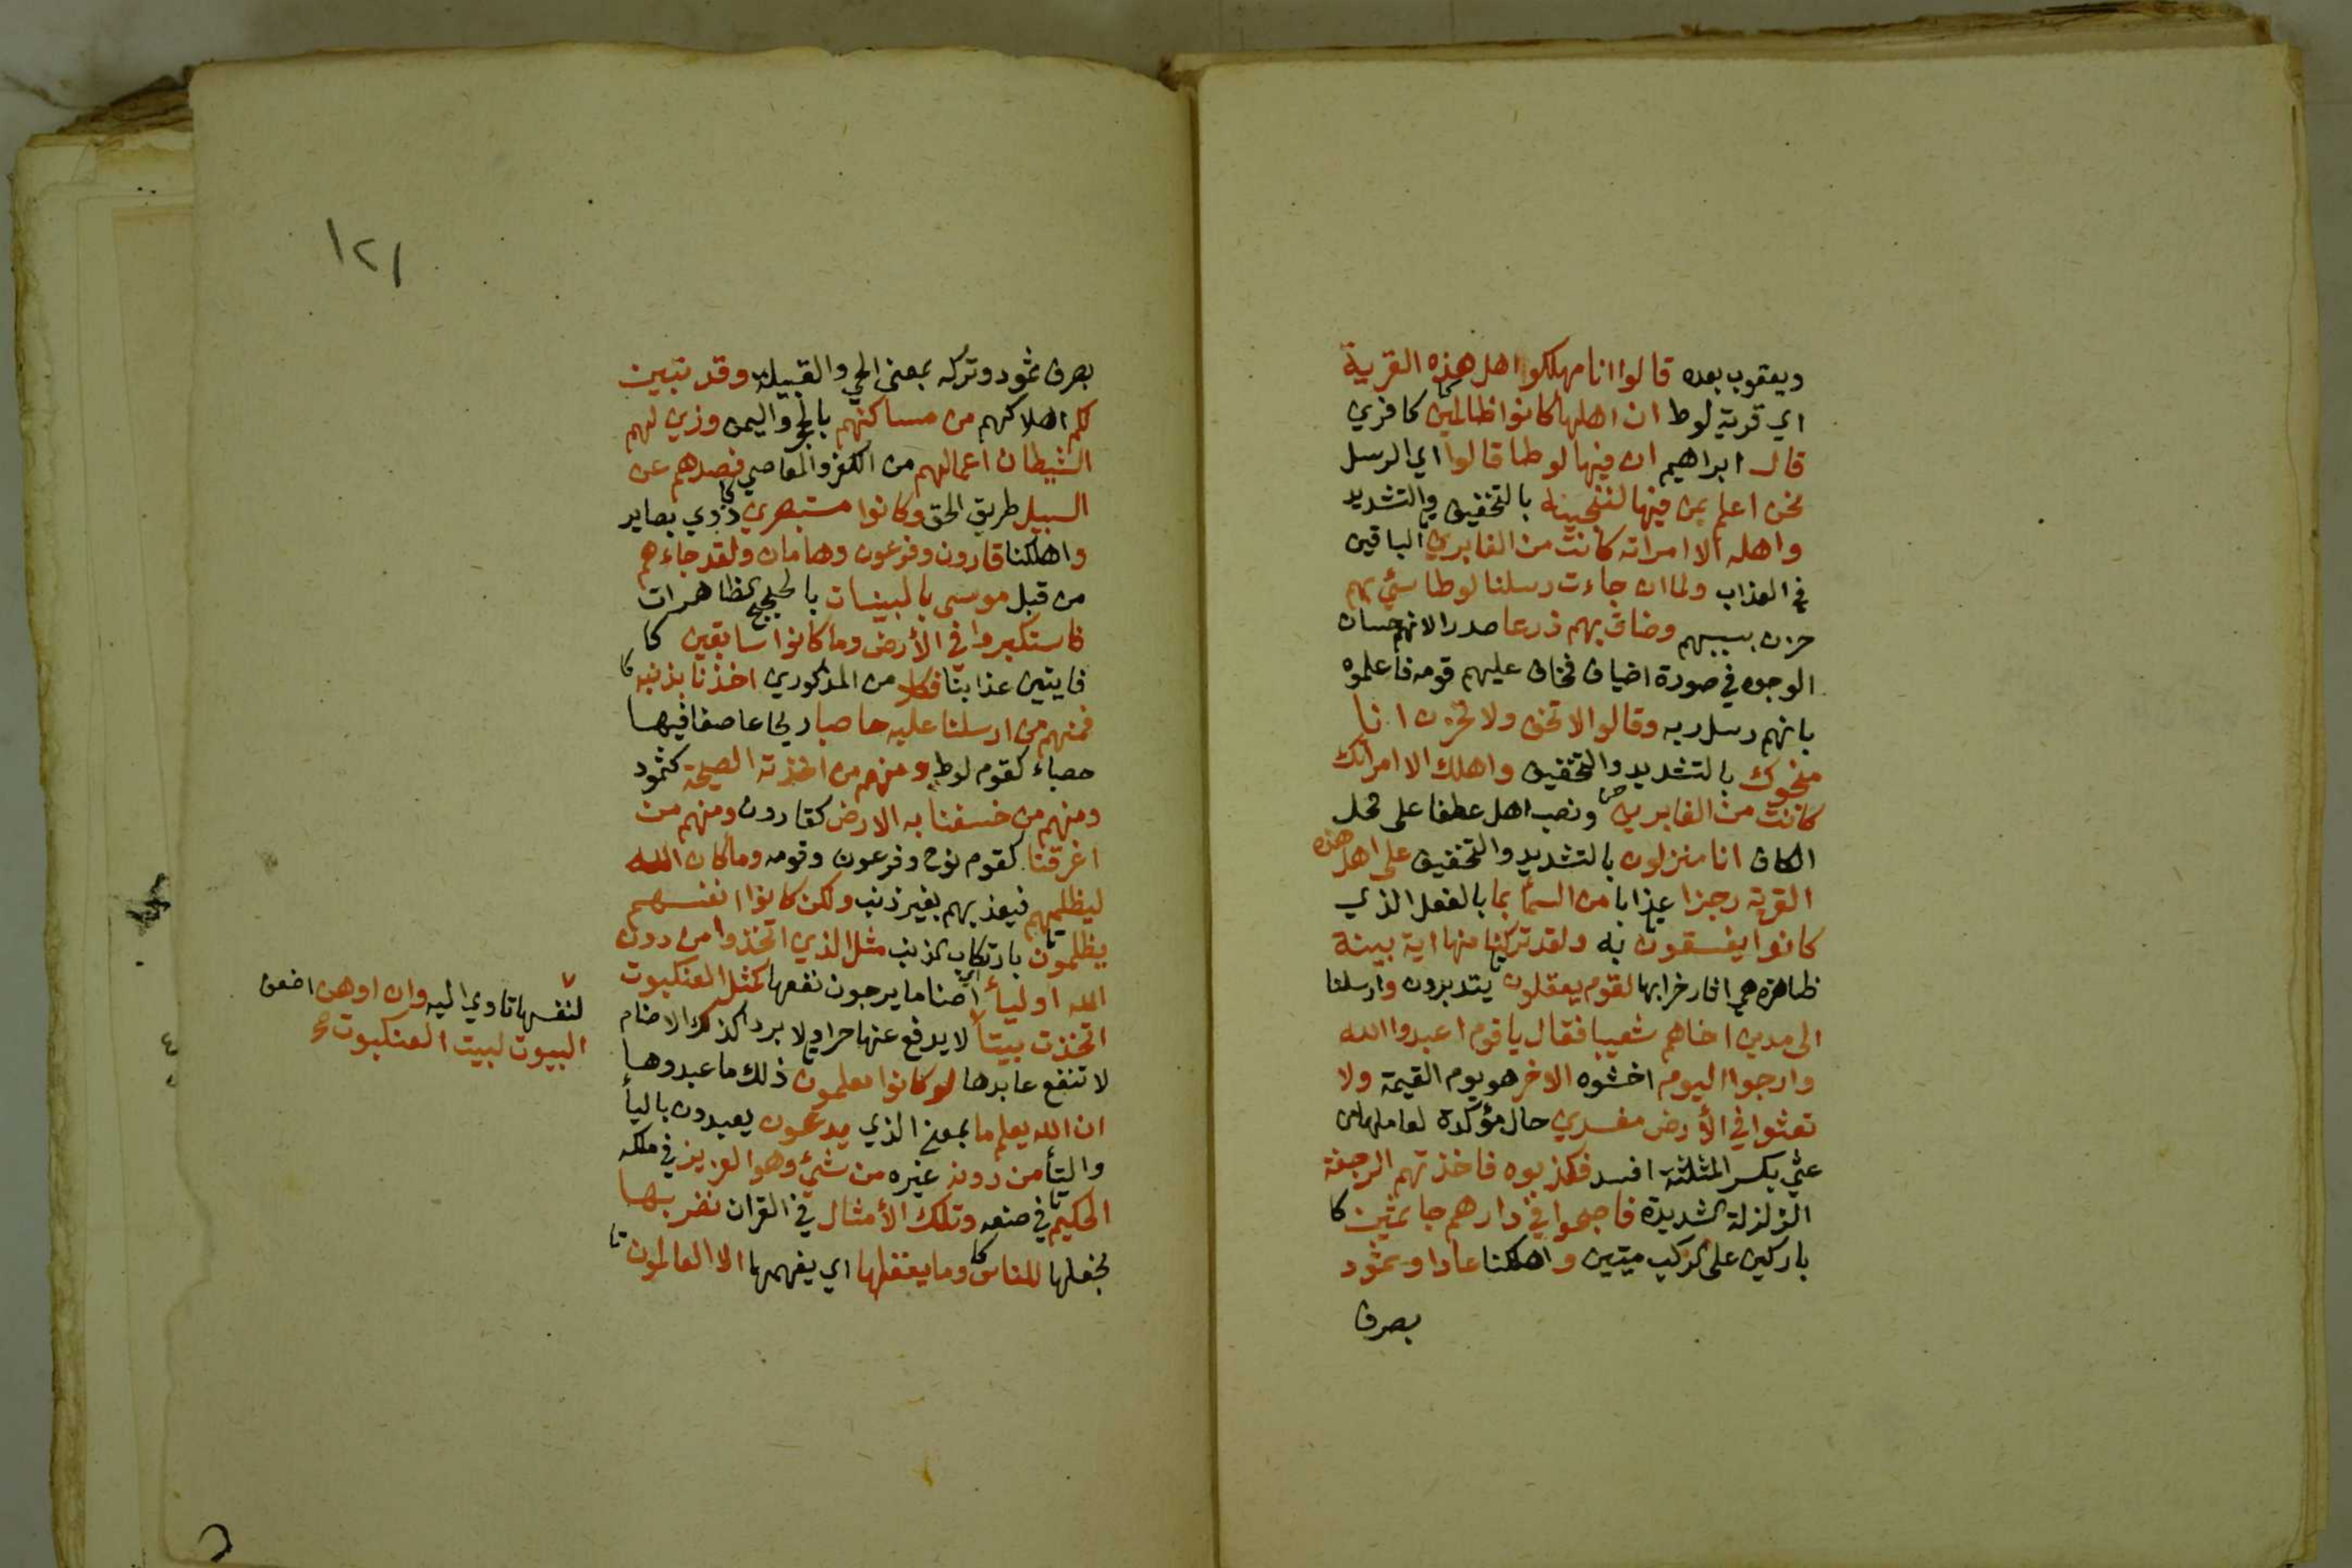 ويعقوب بعده قالوا انا مهلكوا اهل هذه القرية
اي قرية لوط ان اهلها كانوا ظالمين كافرين
قال ابراهيم ان فيها لوطا قالوا اي الرسل
نحن اعلم بمن فيها لننجينه بالتخفيف والتشديد
واهله الا امراته كانت من الغابرين الباقين
في العذاب ولما ان جاءت رسلنا لوطا سئ بهم
حزن بسببهم وضاق بهم ذرعا صدرا لانهم حسان
الوجوه في صورة اضياف فخاف عليهم قومه فاعلموه
بانهم رسل ربه وقالوا لا تخف ولا تحزن انا
منجوك بالتشديد والتخفيف واهلك الا امراتك
كانت من الغابرين ونصب اهل عطفا على محل
الكاف انا منزلون بالتشديد والتخفيف على اهل هذه
القرية رجزا عذابا من السما بما بالفعل الذي
كانوا يفسقون به ولقد تركنا منها اية بينة
ظاهرة هي اثار خرابها لقوم يعقلون يتدبرون وارسلنا
الى مدين اخاهم شعيبا فقال يا قوم اعبدوا الله
وارجوا اليوم اخشوه الاخر هو يوم القيمة ولا
تعثوا في الأرض مفسدين حال مؤكدة لعاملها من
عثي بكسر المثلثة افسد فكذبوه فاخذتهم الرجفة
الزلزلة الشديدة فاصبحوا في دارهم جاثمين كا
باركين على الركب ميتين واهلكنا عادا وثمود
بصرف
١٢١
بصرف ثمود وتركه بمعنى الحي والقبيلة وقد تبين
لكم اهلاكهم من مساكنهم بالحجر واليمن وزين لهم
الشيطان اعمالهم من الكفر والمعاصي فصدهم عن
السبيل طريق الحق وكانوا مستبصرين ذوي بصاير
واهلكنا قارون وفرعون وهامان ولقد جاءهم
من قبل موسى بالبينات بالحجج الظاهرات
فاستكبروا في الأرض وما كانوا سابقين كا
فايتين عذابنا فكلا من المذكورين اخذنا بذنبه
فمنهم من ارسلنا عليه حاصبا ريحا عاصفا فيها
حصباء كقوم لوط ومنهم من اخذته الصيحة كثمود
ومنهم من خسفنا به الارض كقارون ومنهم من
اغرقنا كقوم نوح وفرعون وقومه وما كان الله
ليظلمهم فيعذبهم بغير ذنب ولكن كانوا انفسهم
يظلمون بارتكاب الذنب مثل الذين اتخذوا من دون
الله اولياء اي اصناما يرجون نفعها كمثل العنكبوت
اتخذت بيتا لا يدفع عنها حرا ولا بردا كذلك الاصنام
لا تنفع عابدها لو كانوا يعلمون ذلك ما عبدوها
ان الله يعلم ما بمعنى الذي يدعون يعبدون باليأ
والتأ من دونه غيره من شئ وهو العزيز في ملكه
الحكيم في صنعه وتلك الأمثال في القران نضربها
نجعلها للناس وما يعقلها اي يفهمها الا العالمون
لنفسها تاوي اليه وان اوهن اضعف
البيوت لبيت العنكبوت صح